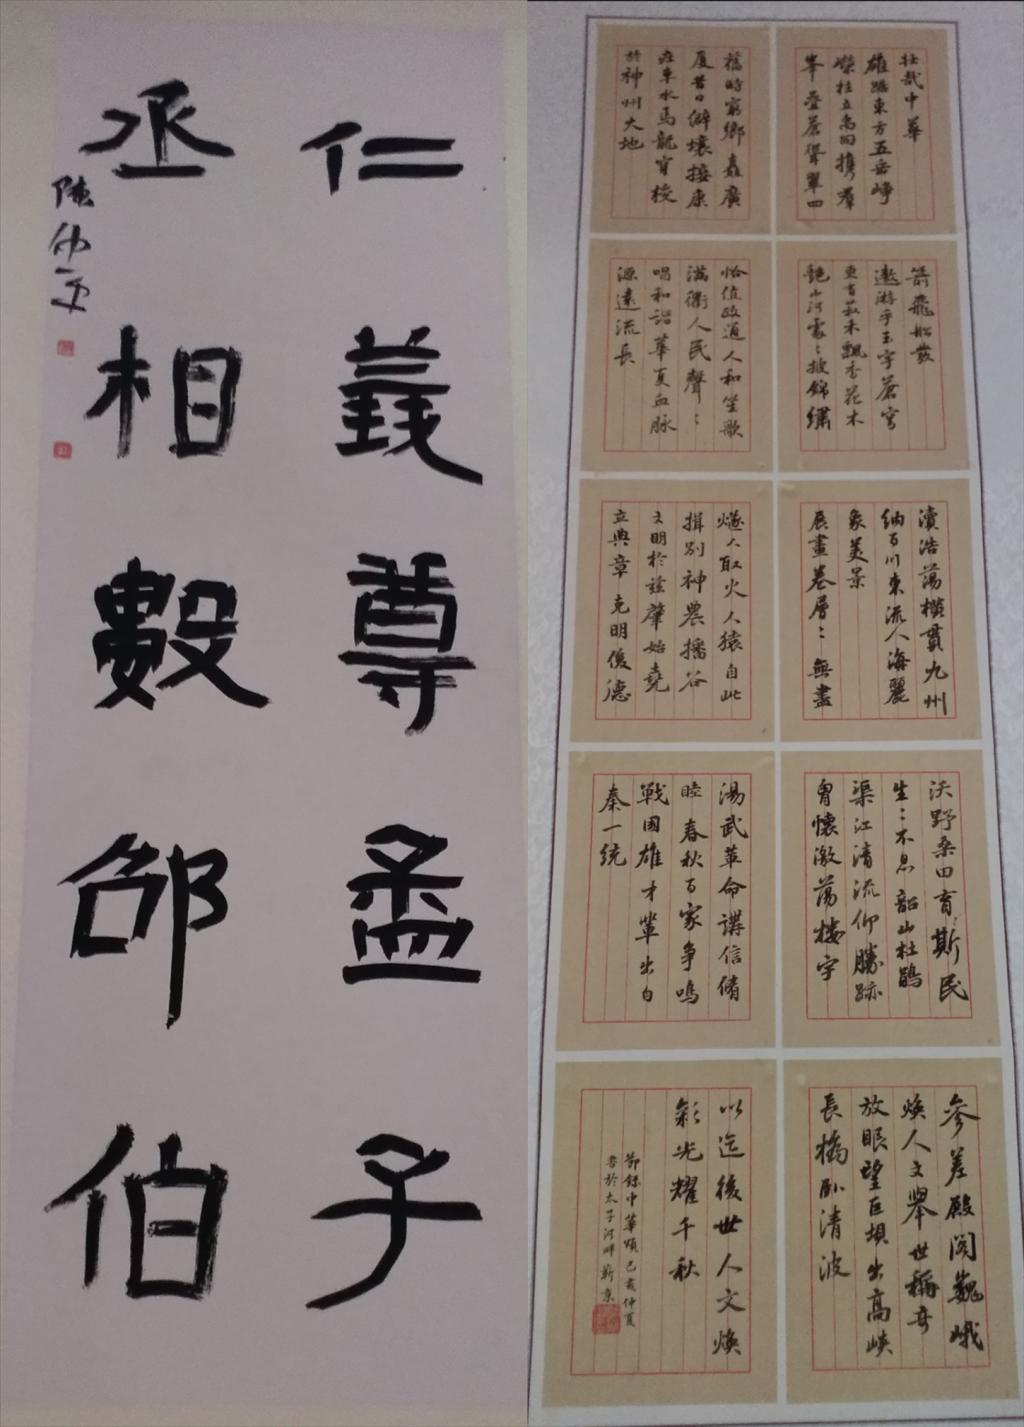 仁義尊孟子
丞相數邵伯
陳仲文
壮哉中華
雄踞東方五岳峥
嶸柱立高四携羣
峯叠蒼聳翠四
箭飛船發
遨游乎玉宇蒼穹
更有菽禾飄香花木
艶山河處〻披錦繡
瀆浩荡横貫九州
納百川東流入海麗
象美景
展畫卷層〻無盡
沃野桑田育斯民
生〻不息韶山杜鵑
渠江清流仰勝跡
胷懷激荡楼宇
參差殿阁巍峨
焕人文舉世稱奇
放眼望巨垻出高峡
長橋卧清波
舊時窮鄉矗廣
厦昔日僻壤接康
莊車水馬龍穿梭
於神州大地
恰值政通人和笙歌
滿衢人民聲〻
唱和谐華夏血脉
源遠流長
燧人取火人猿自此
揖别神農播谷
文明於兹肇始堯
立典章克明俊德
湯武革命講信脩
睦春秋百家争鳴
戰國雄才輩出自
秦一统
以迄後世人文焕
彩光耀千秋
節錄中華頌己亥仲夏
書於太子河畔靳京